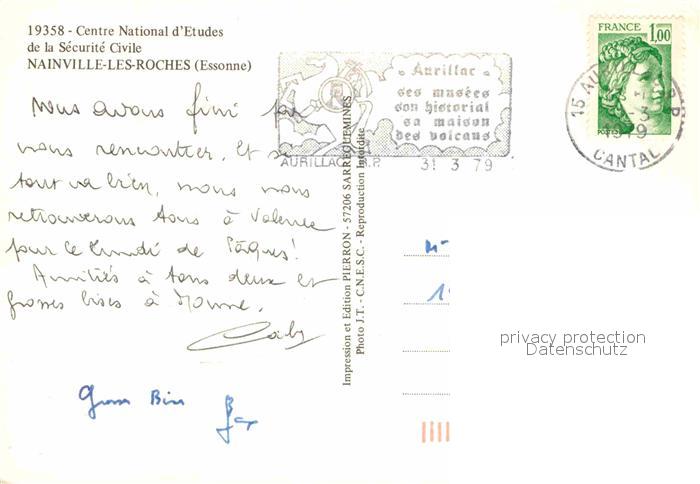 19358 - Centre National d'Etudes
de la Sécurité Civile
NAINVILLE-LES-ROCHES (Essonne)
Nous avons fini par
nous rencontrer, et si
tout va bien, nous nous
retrouverons tous à Valence
pour le lundi de Pâques!
Amitiés à tous deux et
grosses bises à
Gaby
Grosses Bises
Impression et Edition PIERRON - 57206 SARREGUEMINES
Photo J.T. - C.N.E.S.C. - Reproduction Interdite
Aurillac
ses musées
son historial
sa maison
des volcans
AURILLAC R.P.
31 3 79
FRANCE
1,00
POSTES
15 AURILLAC R.P.
1979
CANTAL
privacy protection
Datenschutz